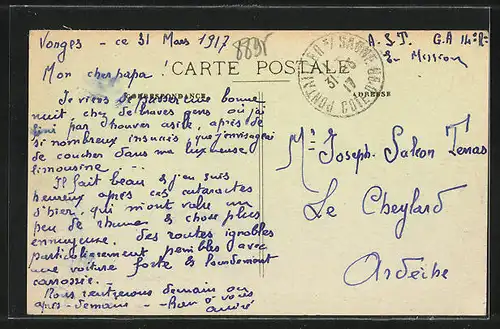 Vonges - ce 31 Mars 1917
8895
A.S.T. G.A 14e R
En Mission
Mon cher papa!
CARTE POSTALE
CORRESPONDANCE
ADRESSE
PONTAILLER S/ SAONE
31
17
COTE D'OR
Je viens de passer une bonne
nuit chez de braves gens où j'ai
fini par trouver asile, après de
si nombreux insuccès que j'envisageai
de coucher dans ma luxueuse
limousine ...
Il fait beau & j'en suis
heureux après ces cataractes
d'hier, qui m'ont valu un
peu de rhume & chose plus
ennuyeuse, des routes ignobles
particulièrement pénibles avec
une voiture forte & lourdement
carrossée. -
Nous rentrerons demain ou
après-demain - Bien à vous
André
Mr Joseph. Saleon Terras
Le Cheylard
Ardèche